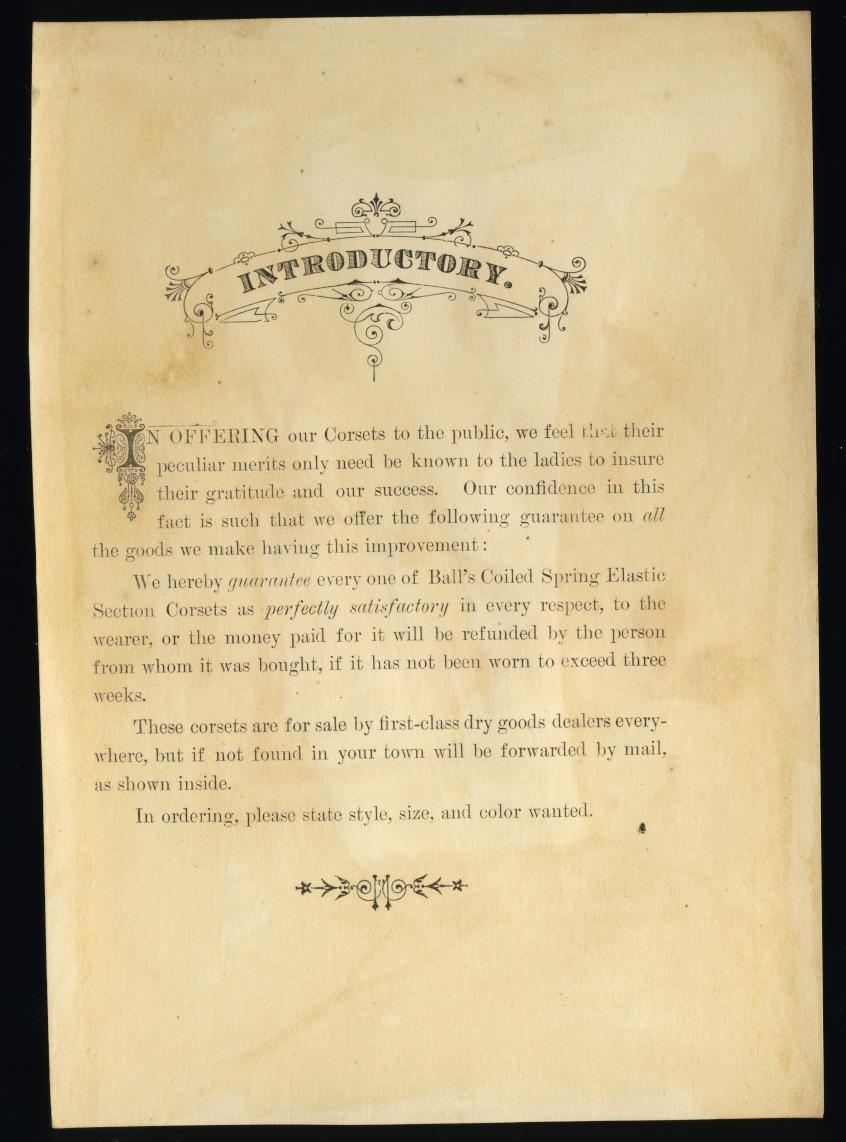 INTRODUCTORY.
IN OFFERING our Corsets to the public, we feel that their
peculiar merits only need be known to the ladies to insure
their gratitude and our success. Our confidence in this
fact is such that we offer the following guarantee on all
the goods we make having this improvement:
We hereby guarantee every one of Ball's Coiled Spring Elastic
Section Corsets as perfectly satisfactory in every respect, to the
wearer, or the money paid for it will be refunded by the person
from whom it was bought, if it has not been worn to exceed three
weeks.
These corsets are for sale by first-class dry goods dealers every-
where, but if not found in your town will be forwarded by mail,
as shown inside.
In ordering, please state style, size, and color wanted.